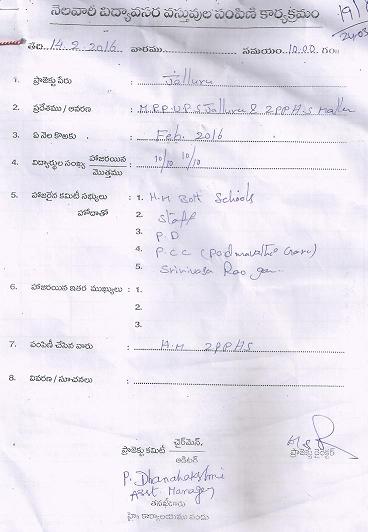 నెలవారీ విద్యావసర వస్తువుల పంపిణీ కార్యక్రమం
19/
24/03
తేది 14.2.2016 వారము సమయం 10.00 గం॥
1. ప్రాజెక్టు పేరు : Jalluru
2. ప్రదేశము / ఆవరణ : M.P.P.U.P.S Jalluru & ZPPH.S
3. ఏ నెల కొఱకు : Feb. 2016
4. విద్యార్థుల సంఖ్య హాజరయిన : 10/10 10/10
మొత్తము
5. హాజరైన కమిటీ సభ్యులు : 1. H.M Both Schools
హోదాతో 2. Staff
3. P.D
4. P.C.C (Padmavathi
5. Srinivasa Rao
6. హాజరయిన ఇతర ముఖ్యులు : 1.
2.
3.
7. పంపిణీ చేసిన వారు : H.M ZPPHS
8. వివరణ / సూచనలు :
ప్రాజెక్టు కమిటీ ఛైర్మెన్, ప్రాజెక్టు డైరెక్టర్
ఆడిటర్
P. Dhanalakshmi
Asst. Manager
తనిఖీదారు
హై కార్యాలయము నందు